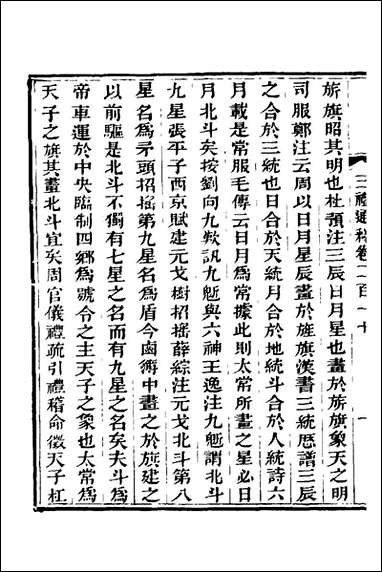 三禮通釋卷二百一十　一
旂旗昭其明也杜預注三辰日月星也畫於旂旗象天之明
司服鄭注云周以日月星辰畫於旌旗漢書三統厯譜三辰
之合於三統也日合於天統月合於地統斗合於人統詩六
月載是常服毛傳云日月爲常據此則太常所畫之星必日
月北斗矣按劉向九歎訊九魁與六神王逸注九魁謂北斗
九星張平子西京賦建元戈樹招搖薛綜注元戈北斗第八
星名爲矛頭招搖第九星名爲盾今鹵簿中畫之於旗建之
以前驅是北斗不獨有七星之名而有九星之名矣夫斗爲
帝車運於中央臨制四鄉爲號令之主天子之象也太常爲
天子之旗其畫北斗宜矣周官儀禮疏引禮稽命徵天子杠